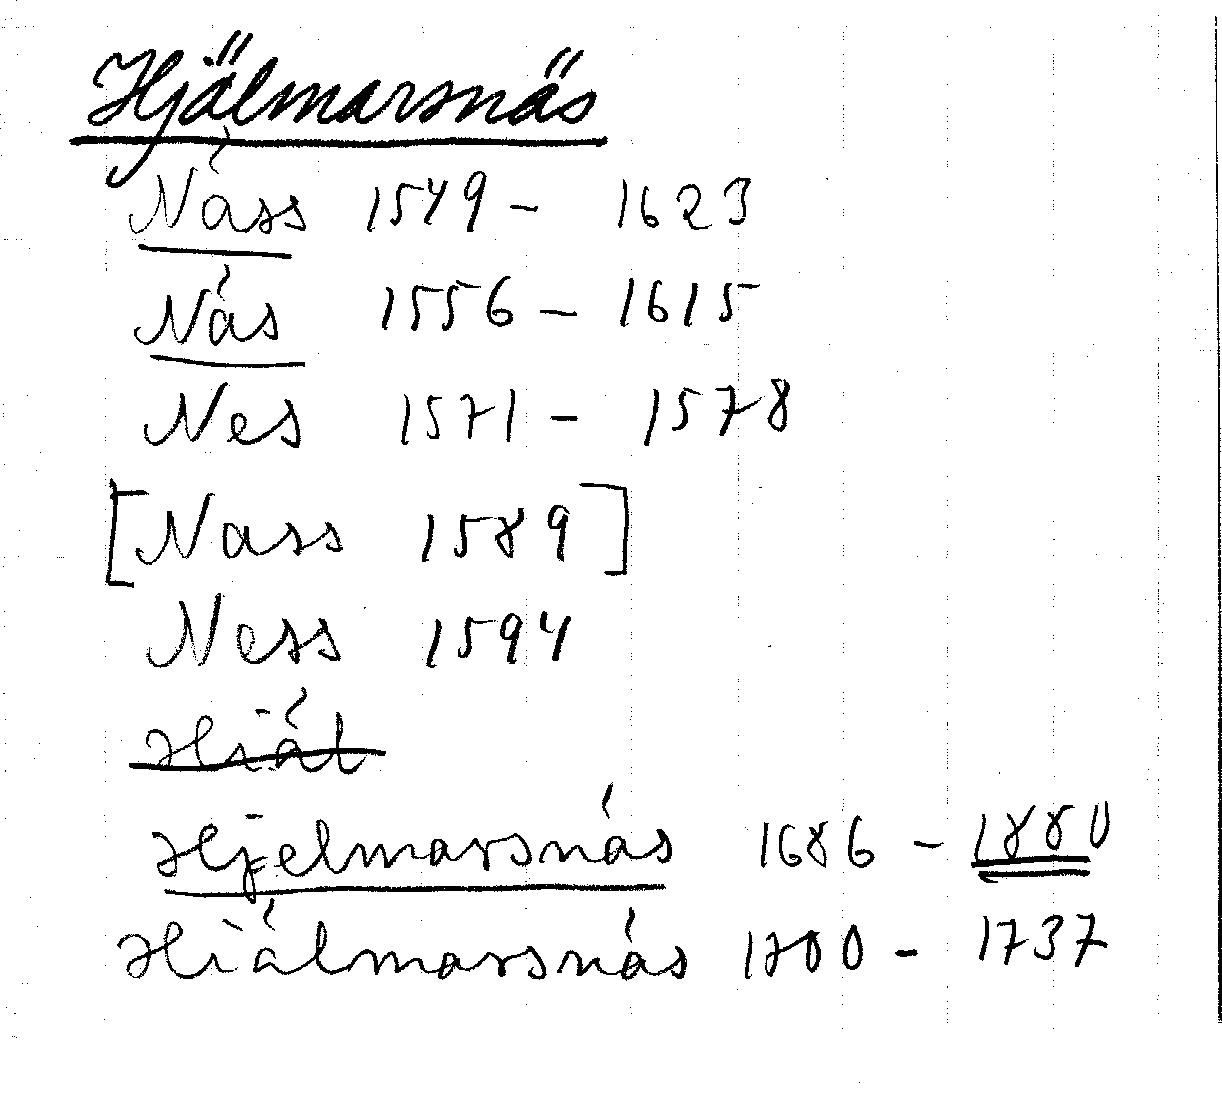 Hjälmarsnäs
Näss 1549 - 1623
Näs 1556 - 1615
Nes 1571 - 1578
[Nass 1589]
Ness 1594
Hiäl
Hjelmarsnäs 1686 - 1880
Hiälmarsnäs 1700 - 1737